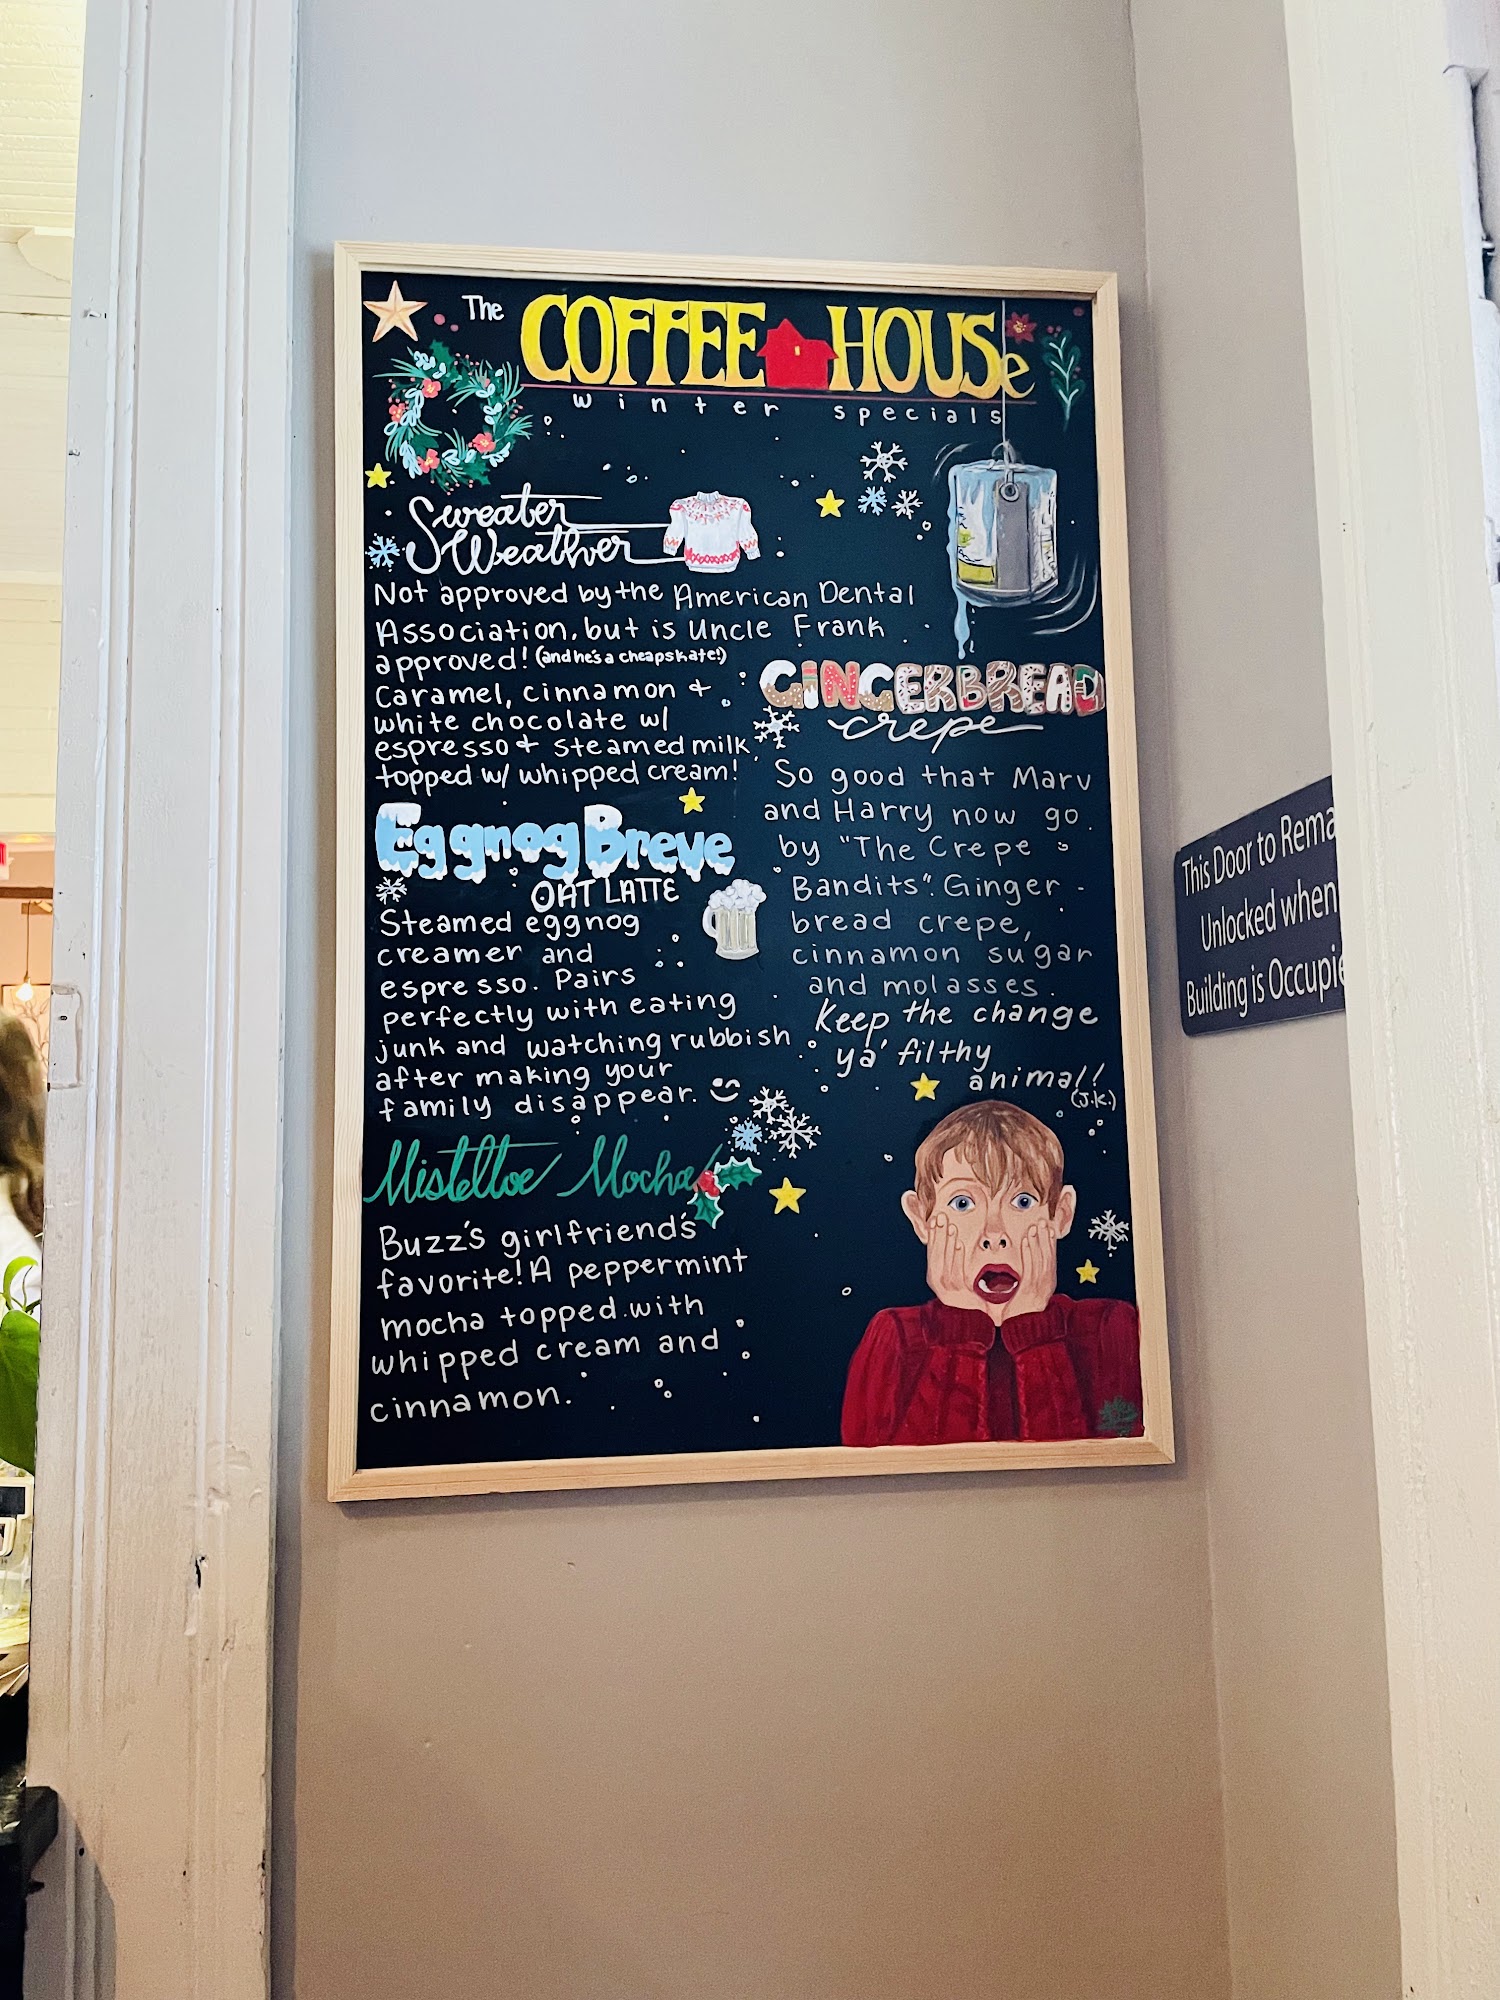 The COFFEE HOUSe
winter specials
Sweater
Weather
Not approved by the American Dental
Association, but is Uncle Frank
approved! (and he's a cheapskate!)
Caramel, cinnamon +
white chocolate w/
espresso + steamed milk
topped w/ whipped cream!
Eggnog Breve
OAT LATTE
Steamed eggnog
creamer and
espresso. Pairs
perfectly with eating
junk and watching rubbish
after making your
family disappear.
Mistletoe Mocha
Buzz's girlfriend's
favorite! A peppermint
mocha topped with
whipped cream and
cinnamon.
GINGERBREAD
crepe
So good that Marv
and Harry now go
by "The Crepe
Bandits". Ginger-
bread crepe,
cinnamon sugar
and molasses.
Keep the change
ya' filthy
animal!
(J.K.)
This Door to Rema
Unlocked when
Building is Occupie